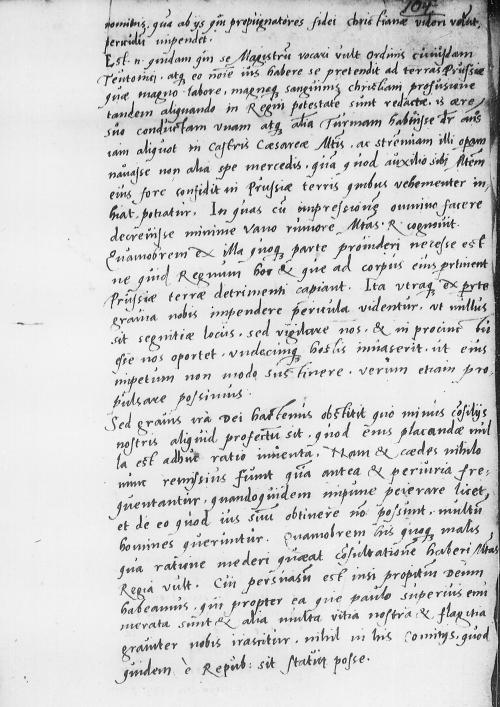 nominis, qua ab ijs qui propugnatores fidei christianæ videri volūt,
periculū impendet.
Est .n. quidam qui se Magistrū vocari vult Ordinis cuiusdam
Teutonici, atq eo noīe ius habere se pretendit ad terras Prussiæ
quæ magno labore, magnaq sanguinis christiani profusione
tandem aliquando in Regni potestate sunt redactæ, is ære
suo conductam vnam atq alia Turmam habuisse dr anis
iam aliquot in castris Cæsareæ Mtis, ac strenuam illi opam
nauasse non alia spe mercedis, quā quod auxilio sibi Mtem
eius fore confidit in Prussiæ terris quibus vehementer in
hiat, potiatur. In quas cū impressione omnino facere
decreuisse minime vano rumore Mtas R. cognouit.
Quamobrem ex illa quoq parte prouideri necesse est
ne quid Regnum hoc & que ad corpus eius prtinent
Prussiæ terræ detrimenti capiant. Ita vtraq ex prte
grauia nobis impendere pericula videntur, vt nullus
sit segnitiæ locus, sed vigilare nos, & in procinctu
esse nos oportet, vndecunq hostis inuaserit, ut eius
impetum non modo sustinere, verum etiam pro-
pulsare possimus.
Sed grauis ira Dei hactenus obstitit quo minus cōsilijs
nostris aliquid profectū sit, quod eius placandæ nul
la est adhuc ratio inuenta. Nam & cædes nihilo
nunc remissius fiunt quā antea & periuria fre-
quentantur, quandoquidem impune peierare licet,
et de eo quod ius suū obtinere nō possunt, multū
homines queruntur. Quamobrem his quoq malis
qua ratione mederi queat cōsultationē haberi Mtas
Regia vult. Cui persuasū est nisi propitiū Deum
habeamus, qui propter ea que paulo superius enu
merata sunt & alia multa vitia nostra & flagitia
grauiter nobis irascitur, nihil in his Comitijs, quod
quidem è Repub: sit statui posse.